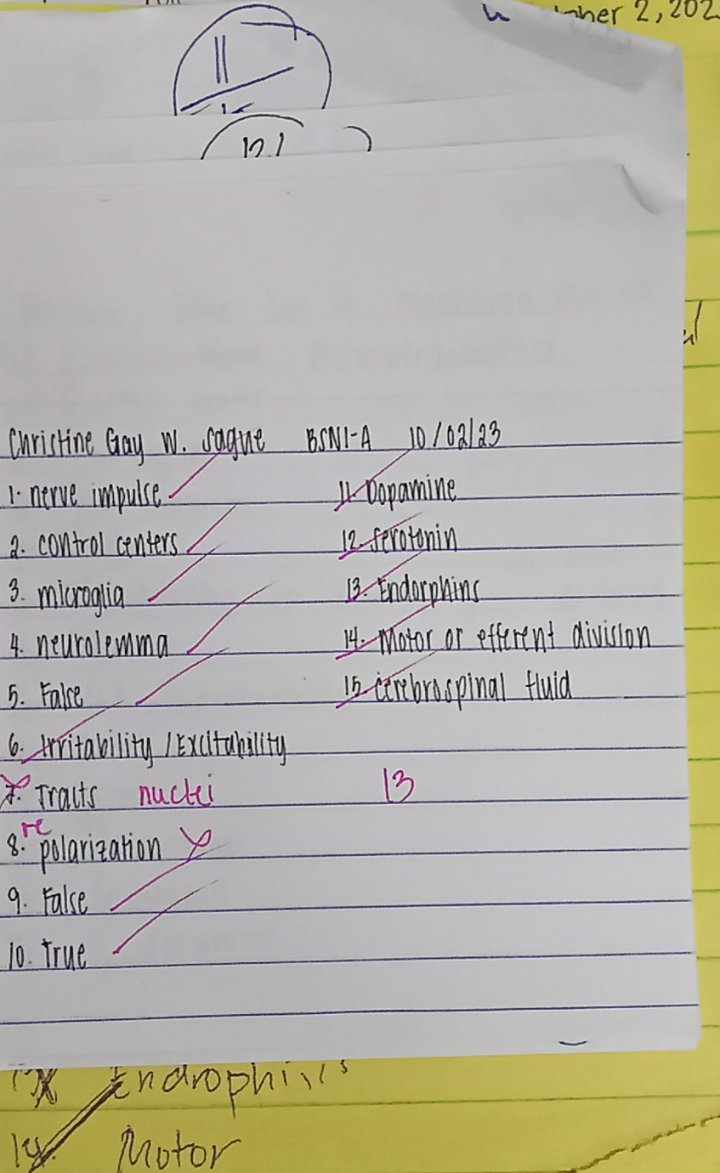 tober 2, 202
11
Christine Gay W. Sague BSN1-A 10/02/23
1. nerve impulse
2. control centers
3. microglia
4. neurolemma
5. False
6. Irritability / Excitability
7. Tracts nuclei
8. re polarization
9. False
10. True
11. Dopamine
12. Serotonin
13. Endorphins
14. Motor or efferent division
15. cerebrospinal fluid
13
Endrophins
14. Motor